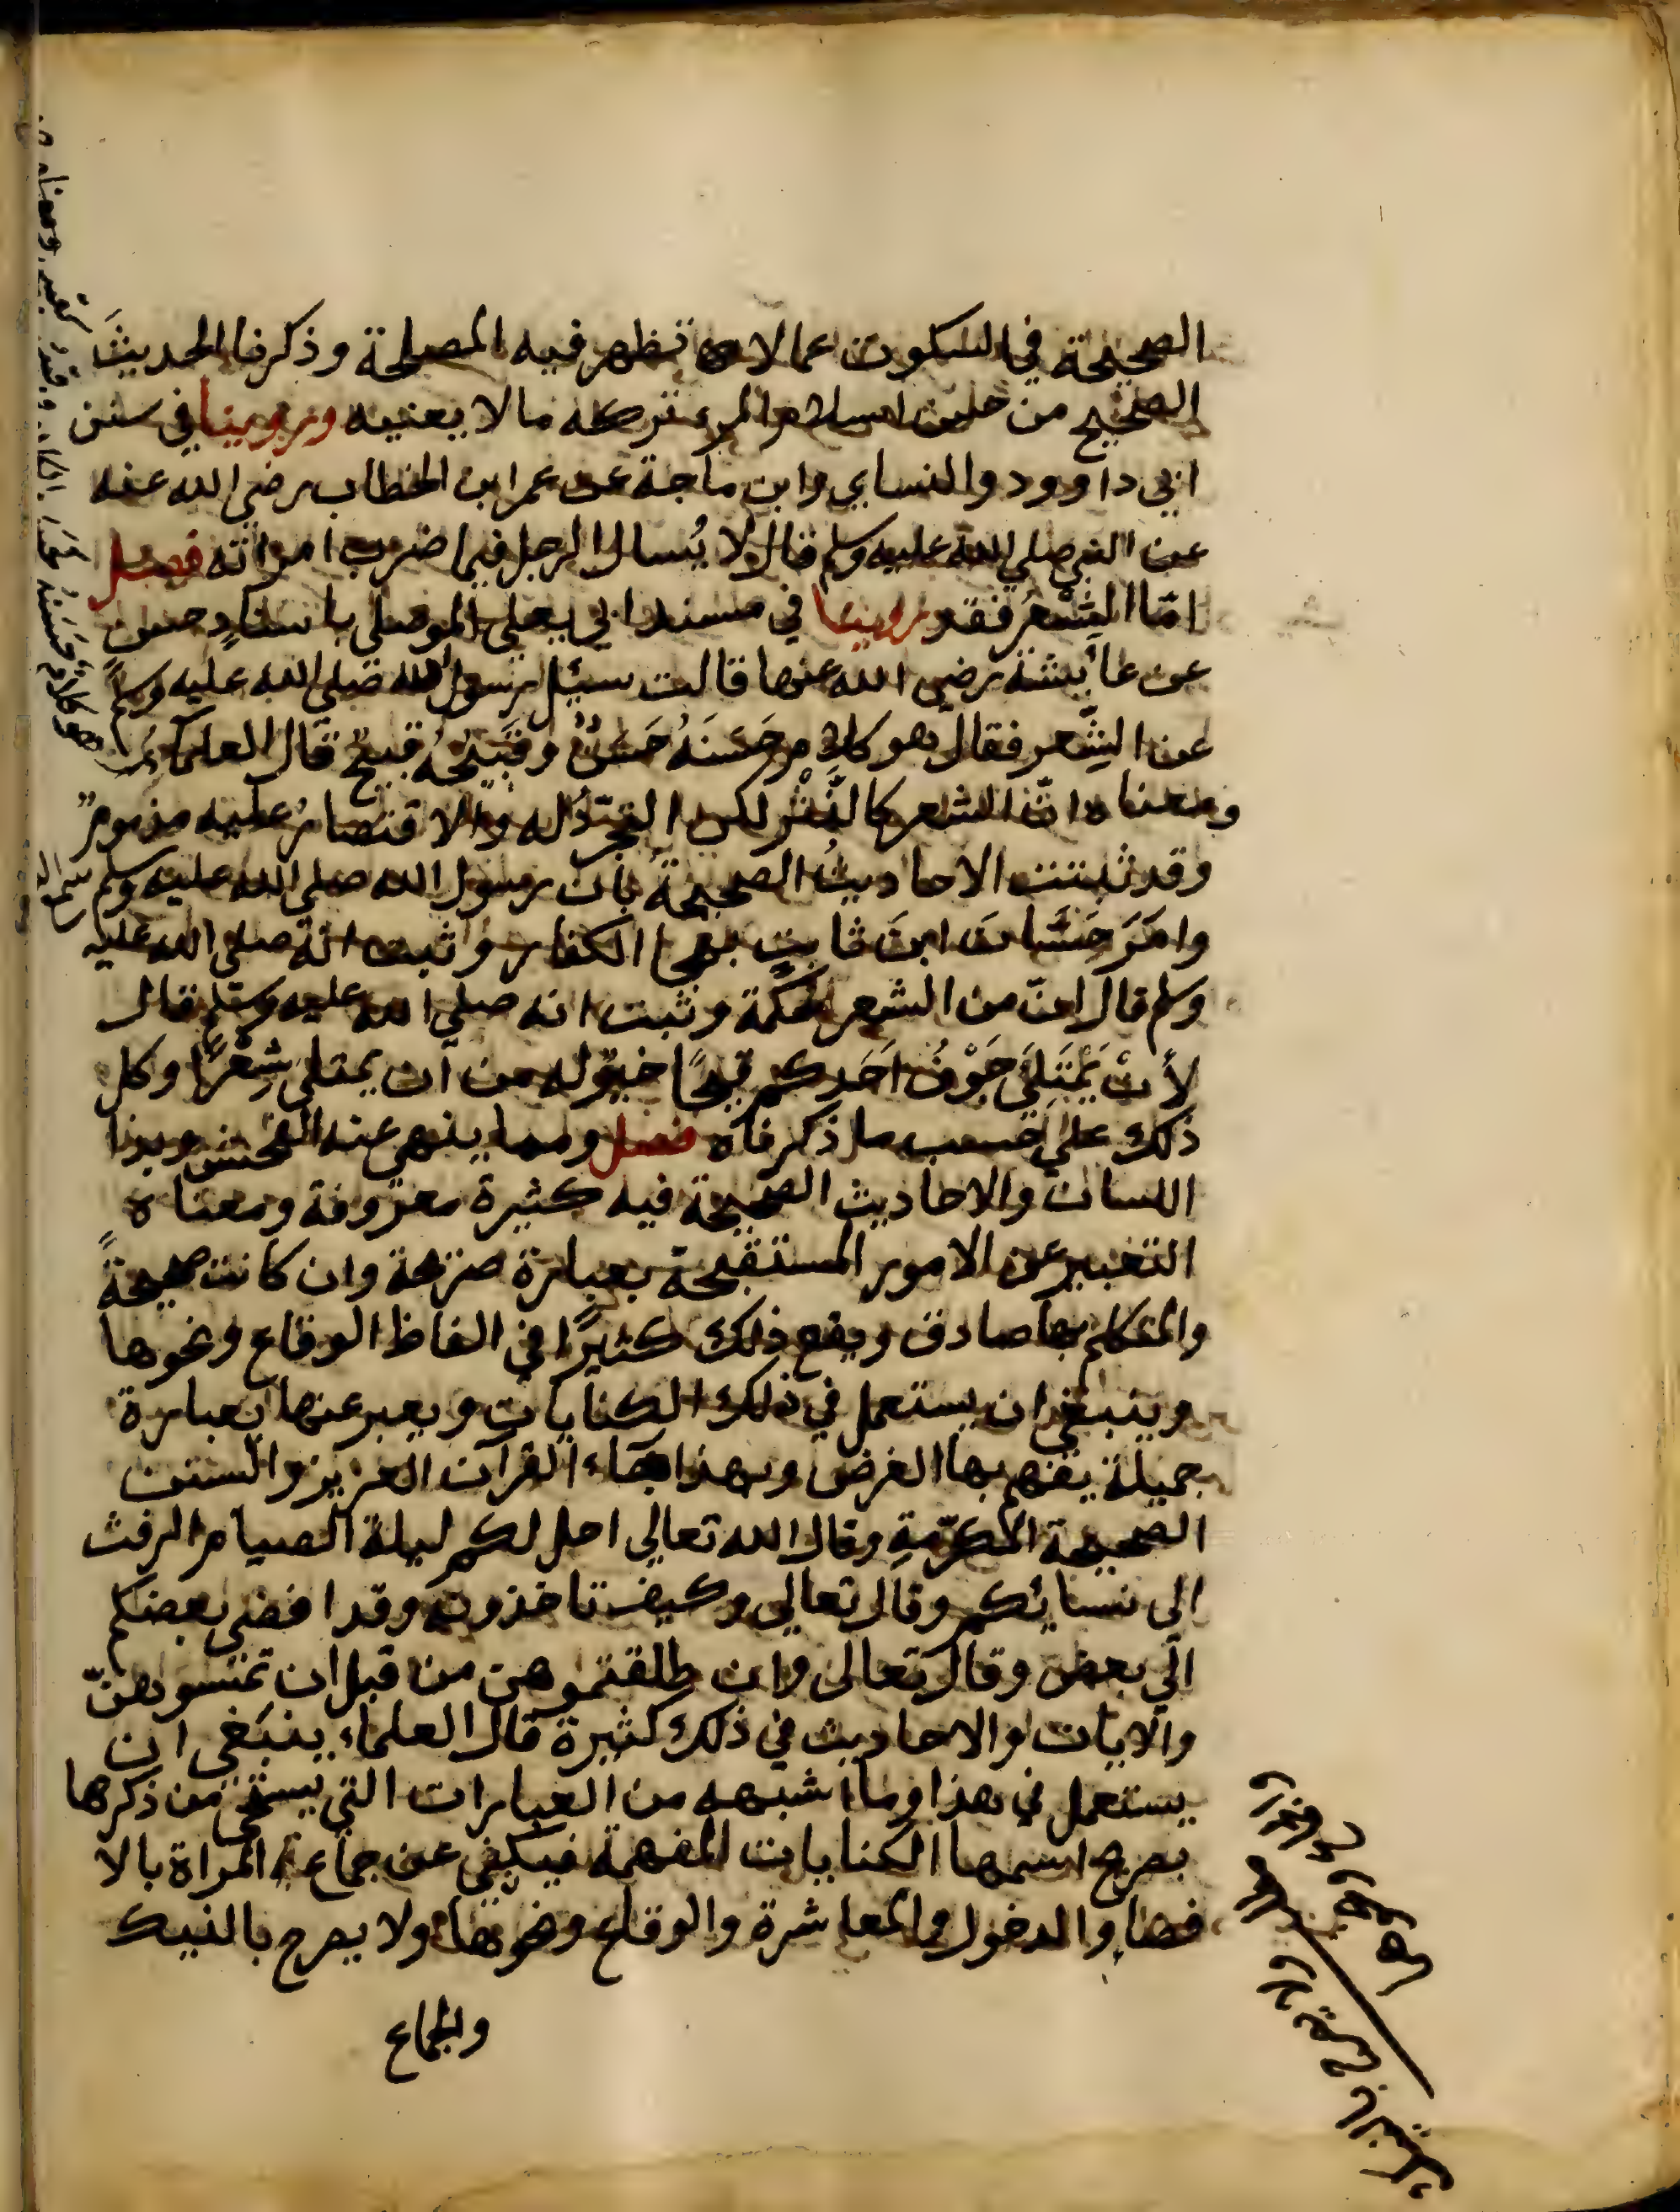 الصحيحة في السكوت عما لا تظهر فيه المصلحة وذكرنا الحديثَ
الصحيح من حسن اسلام المرء تركه ما لا يعنيه وروينا في سنن
ابي داوود والنساي وابن ماجة عن عمر ابن الخطاب رضي الله عنه
عن النبي صلي الله عليه وسلم قال لا يُسال الرجل فيما ضرب امراته فصل
امّا الشِعْرُ فقد روينا في مسند ابي يعلي الموصلي باسنادٍ حسن
عن عائشة رضي الله عنها قالت سئِل رسول الله صلى الله عليه وسلم
عن الشِّعر فقال هو كلام حَسَنَهُ حَسَنٌ وقَبيحُهُ قبيحٌ قال العلماءُ
ومعناه انّ الشعر كالنَّثْرِ لكن التجرّدُ له والاقتصارُ عليه مذمومٌ
وقد ثبتت الاحاديثُ الصحيحةُ بان رسول الله صلى الله عليه وسلم سمع الشعر
وامَرَ حَسَّانَ ابنَ ثابتٍ بهجا الكفار وثبت انّه صلى الله عليه
وسلم قال انّ من الشعر لحكمة وثبت انه صلي الله عليه وسلم قال
لأنْ يَمْتَلِئَ جَوْفُ اَحَدكم قيحًا خيرٌ له من ان يمتلي شِعْرًا وكل
ذلك علي حسب ما ذكرناه فصل ومما ينهي عنه الفحش وبذا
اللسان والاحاديث الصحيحة فيه كثيرة معروفة ومعناه
التعبير عن الامور المستقبحة بعبارة صريحة وان كانت صحيحةً
والمتكلم بها صادق ويقع ذلك كثيرًا في الفاظ الوقاع ونحوها
وينبغي ان يستعمل في ذلك الكنايات ويعبر عنها بعبارة
جميلة يفهم بها الغرض وبهذا جاء القرآن العزيز والسنن
الصحيحة المكرّمةِ وقال الله تعالي احل لكم ليلة الصيام الرفث
الى نسائكم وقال تعالي وكيف تاخذونه وقد افضى بعضكم
الي بعض وقال تعالى وان طلقتموهن من قبل ان تمسوهنّ
والايات والاحاديث في ذلك كثيرة قال العلماء ينبَغي ان
يستعمل في هذا وما اشبهه من العبارات التي يستحي من ذكرها
بصريح اسمها الكنايات المفهمة فيكني عن جماع المراة بالا
فضا والدخول والمعاشرة والوقاع ونحوها ولا يصرح بالنيك
والجماع